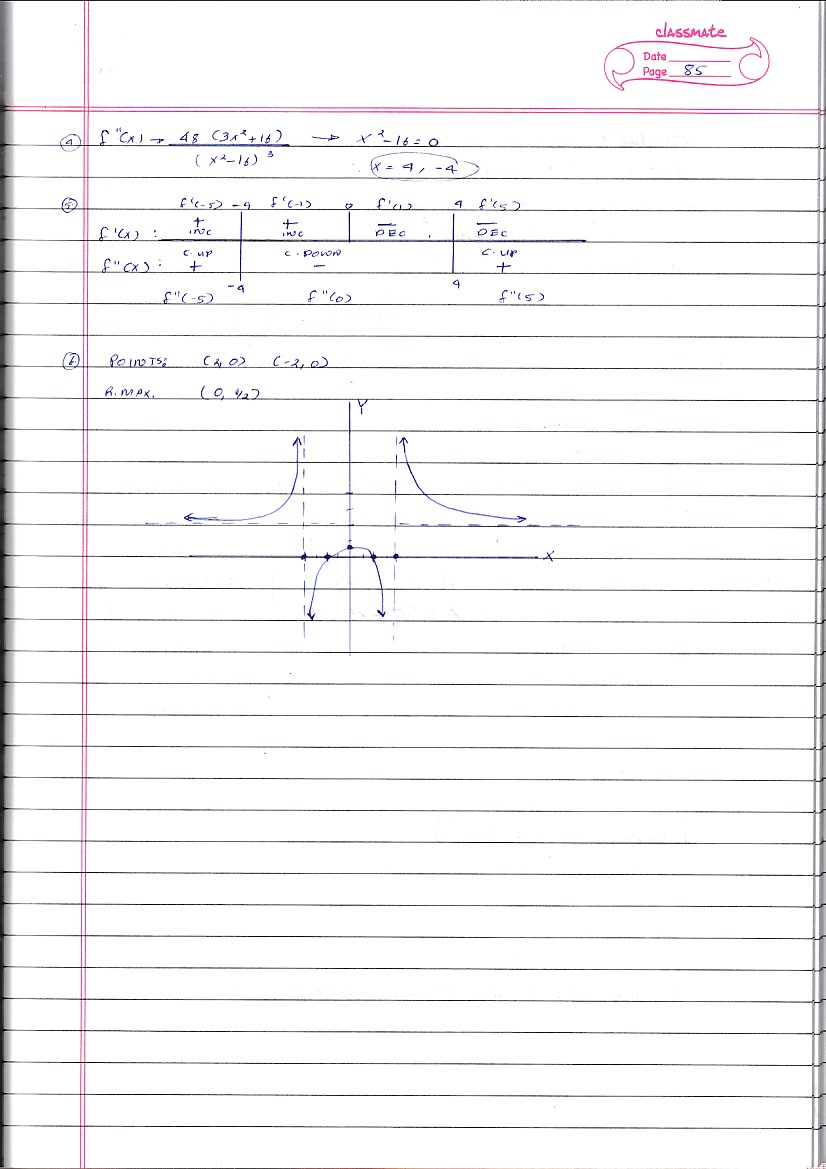 classmate
Date
Page 85
④ f"(x) → 48 (3x²+16) / (x²-16)³ → x²-16=0
x = 4, -4
⑤ f'(-5) -4 f'(-1) 0 f'(1) 4 f'(5)
+ + — —
f'(x) : INC INC DEC DEC
C. UP C. DOWN C. UP
f"(x) : + − +
-4 4
f"(-5) f"(0) f"(5)
⑥ POINTS: (2,0) (-2,0)
R.MAX. (0, 1/2)
Y
X